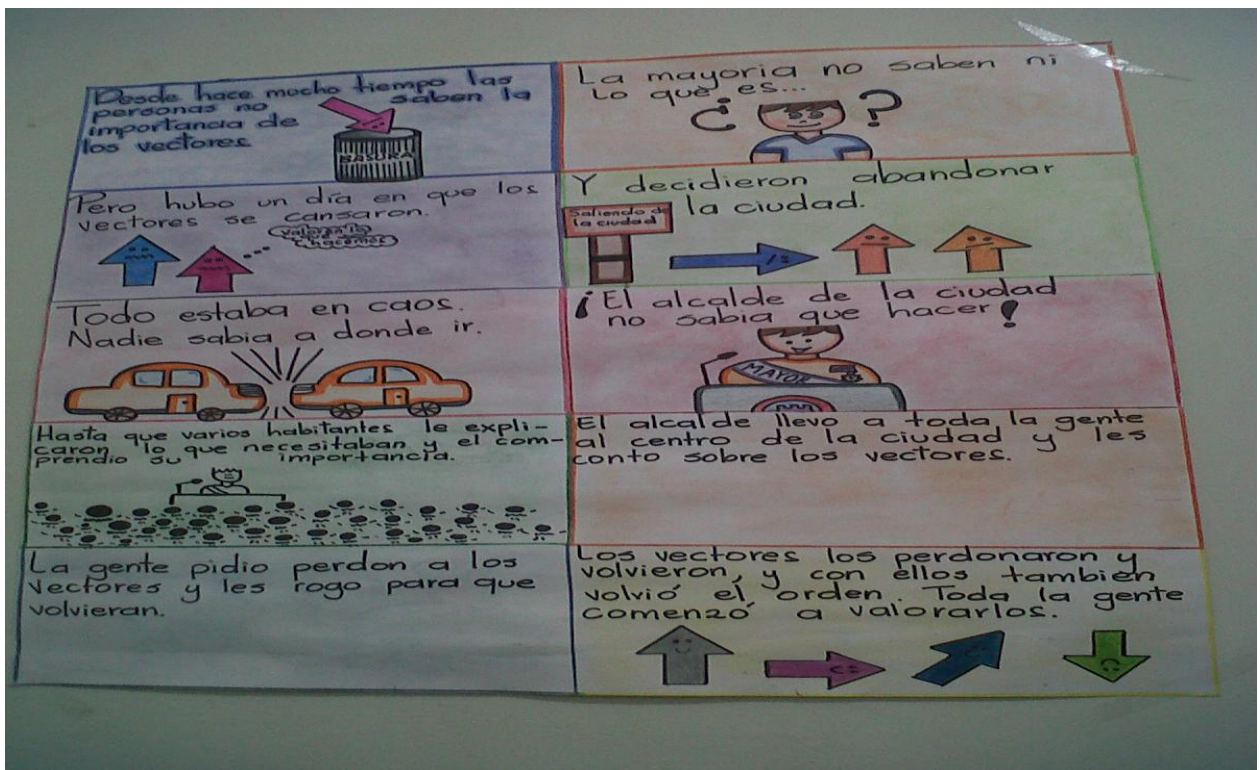 Desde hace mucho tiempo las
personas no saben la
importancia de
los vectores
BASURA
La mayoria no saben ni
lo que es...
¿ ?
Pero hubo un día en que los
vectores se cansaron.
valoran lo
que
hacemos
Y decidieron abandonar
la ciudad.
Saliendo de
la ciudad
Todo estaba en caos.
Nadie sabia a donde ir.
¡El alcalde de la ciudad
no sabia que hacer!
MAYOR
Hasta que varios habitantes le expli-
caron lo que necesitaban y el com-
prendio su importancia.
El alcalde llevo a toda la gente
al centro de la ciudad y les
conto sobre los vectores.
La gente pidio perdon a los
vectores y les rogo para que
volvieran.
Los vectores los perdonaron y
volvieron, y con ellos tambien
volvió el orden. Toda la gente
comenzó a valorarlos.